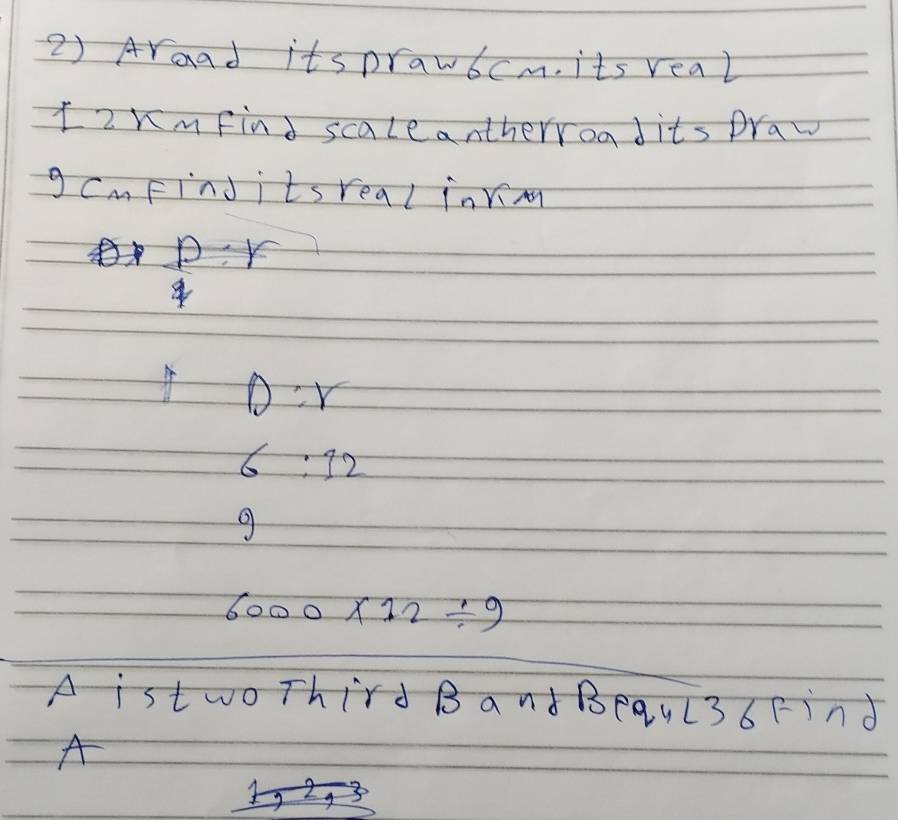 2) A raad its Draw 6cm. its real
12 Km Find scale anther road its Draw
9 cm Find its real in Km
D : r
D : r
6 : 12
9
6000 x 12 ÷ 9
A is two Third B and B equl 36 Find
A
1, 2, 3